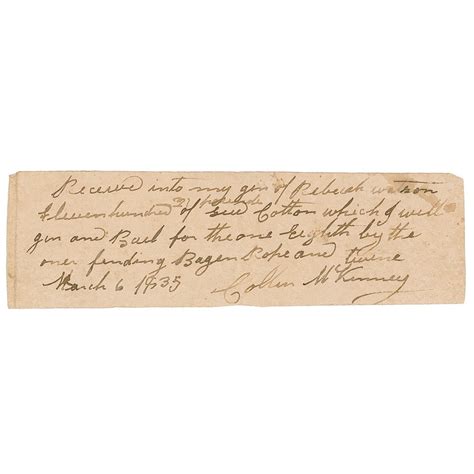 Receive into my gin of Rebecah watson
Elevenhundred of Seed Cotton which I will
gin and Bail for the one Eighth by the
oner finding Bagen Rope and twine
March 6 1835 Collin McKinney